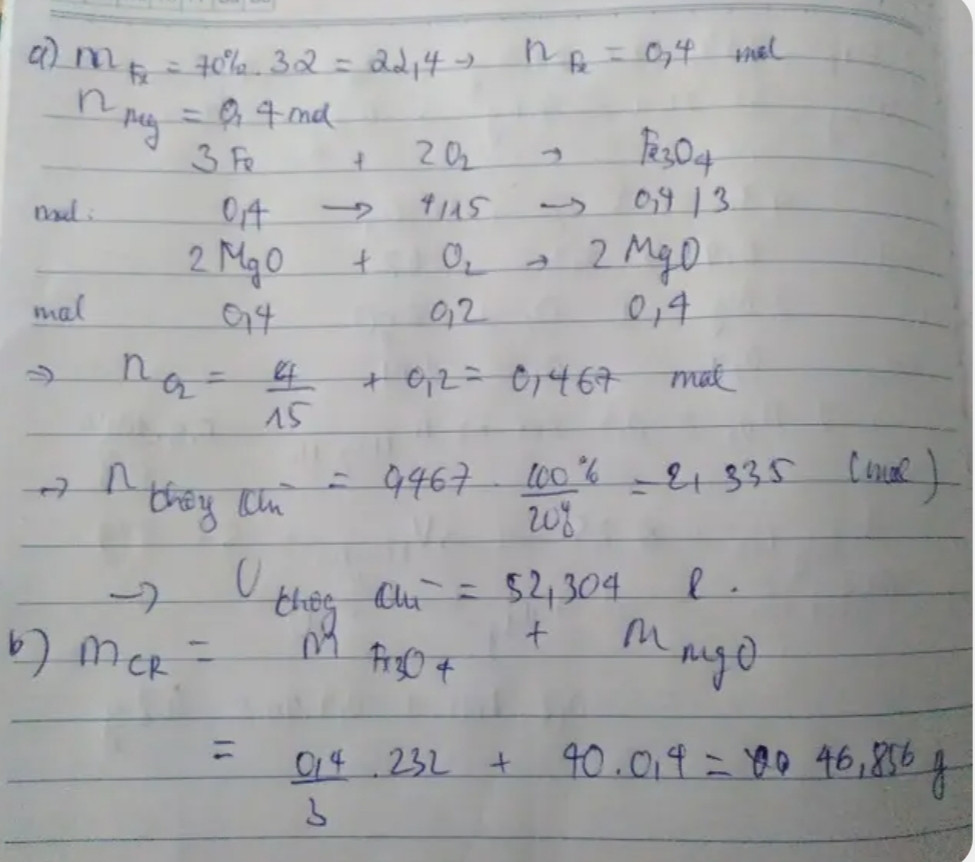 a) m Fe = 70%. 32 = 22,4 → n Fe = 0,4 mol
n Mg = 0,4 mol
3 Fe + 2O₂ → Fe₃O₄
mol: 0,4 → 4/15 → 0,4/3
2 MgO + O₂ → 2 MgO
mol 0,4 0,2 0,4
⇒ n O₂ = 4/15 + 0,2 = 0,467 mol
→ n = 0,467 . 100%/20% = 2,335 (mol)
→ V = 52,304 l.
b) m CR = m Fe₃O₄ + m MgO
= 0,4/3 . 232 + 40.0,4 = 46,856 g